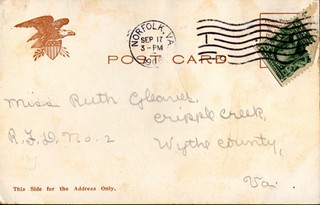 NORFOLK, VA.
SEP 17
3-PM
POST CARD
Miss Ruth Cleaves,
Cripple Creek,
R.F.D. No. 2
Wythe County,
Va.
This Side for the Address Only.